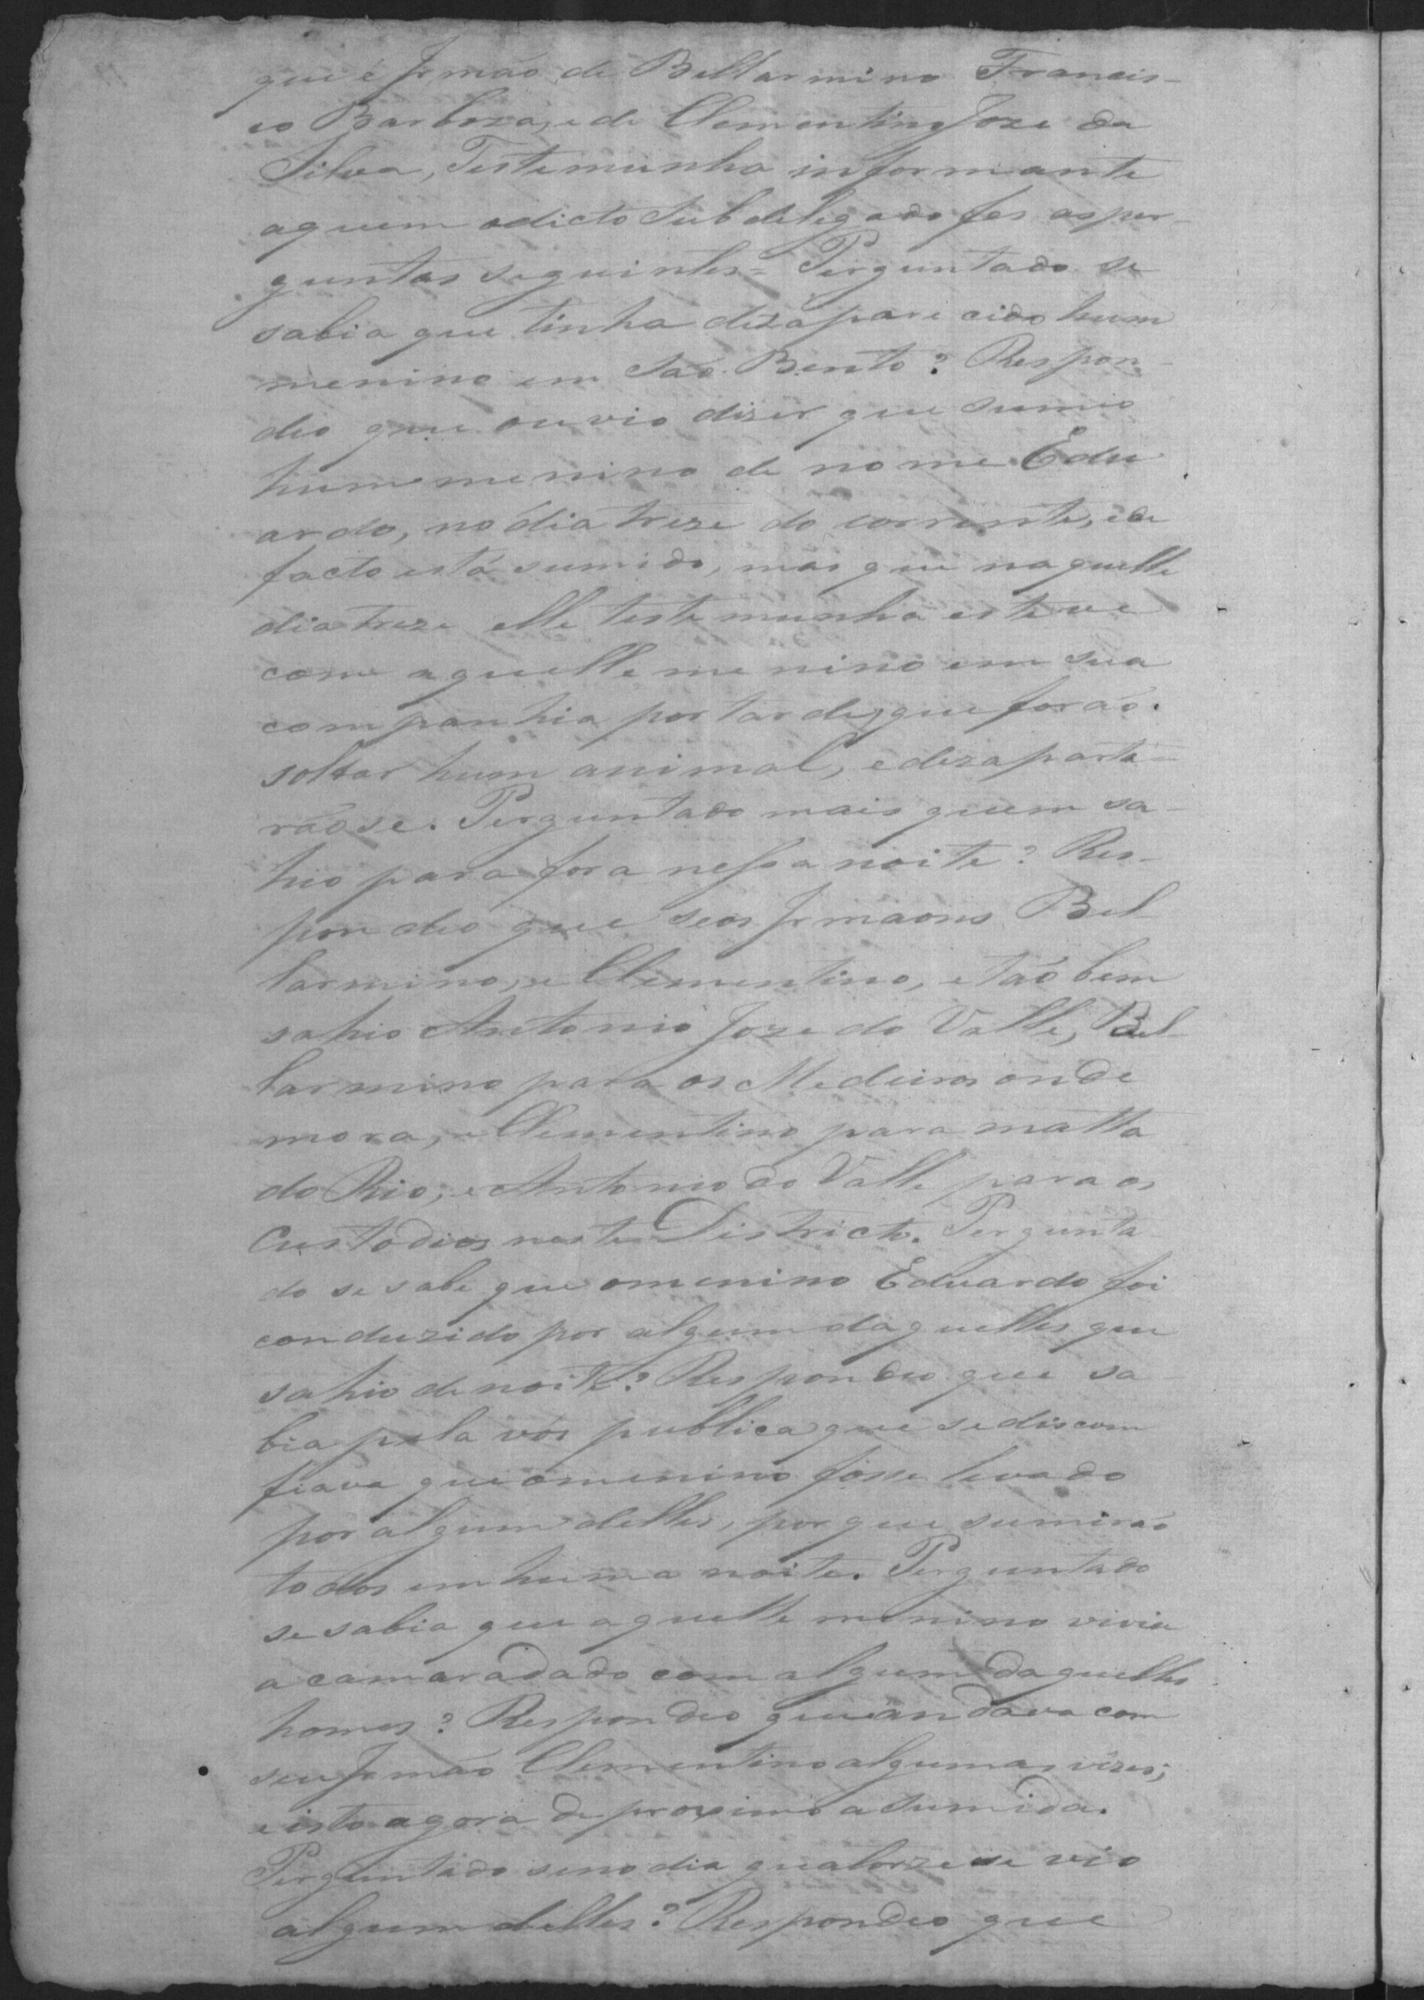 que é Irmão de Bellarmino Francis-
co Barboza, e de Clementino Joze da
Silva, Testemunha informante
aquem odicto Subdelegado fes asper-
guntas seguintes = Perguntado se
sabia que tinha dezaparecido hum
menino em São Bento? Respon-
deo que ouvio dizer que sumio
hum menino de nome Edu
ardo, nodia treze do corrente, ede
facto está sumido, mas que naquelle
dia treze elle testemunha esteve
com aquelle menino em sua
companhia por tarde, que forão.
soltar hum animal, e dezaparta-
rãose. Perguntado mais quem sa-
hio para fora nessa noite? Res-
pondeo que seos Irmaons Bel
larmino, e Clementino, etão bem
sahio Antonio Joze do Valle, Bel-
larmino para os Medeiros onde
mora, e Clementino para matta
do Rio, e Antonio do Valle para os
Custodios neste Districto. Pergunta
do se sabe que omenino Eduardo foi
conduzido por algum daquelles que
sahio de noite? Respondeo que sa-
bia pela vós publica que sediscom
fiava que omenino fosse levado
por algum delles, por que sumirão
todos em huma noite. Perguntado
se sabia que aquelle menino vivia
acamaradado com algum daquelles
homes? Respondeo que andava com
seu Irmão Clementino algumas vezes,
e isto agora de proximo a sumida.
Perguntado seno dia quatorze se vio
algum delles? Respondeo que